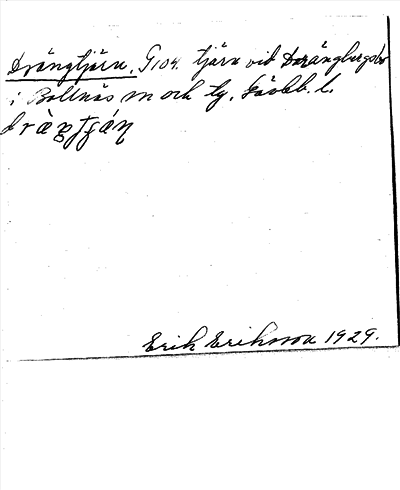 Drängtjärn. G104. tjärn vid Drängbergsbo
i Bollnäs sn och tg. Gävleb. l.
Erik Eriksson 1929.